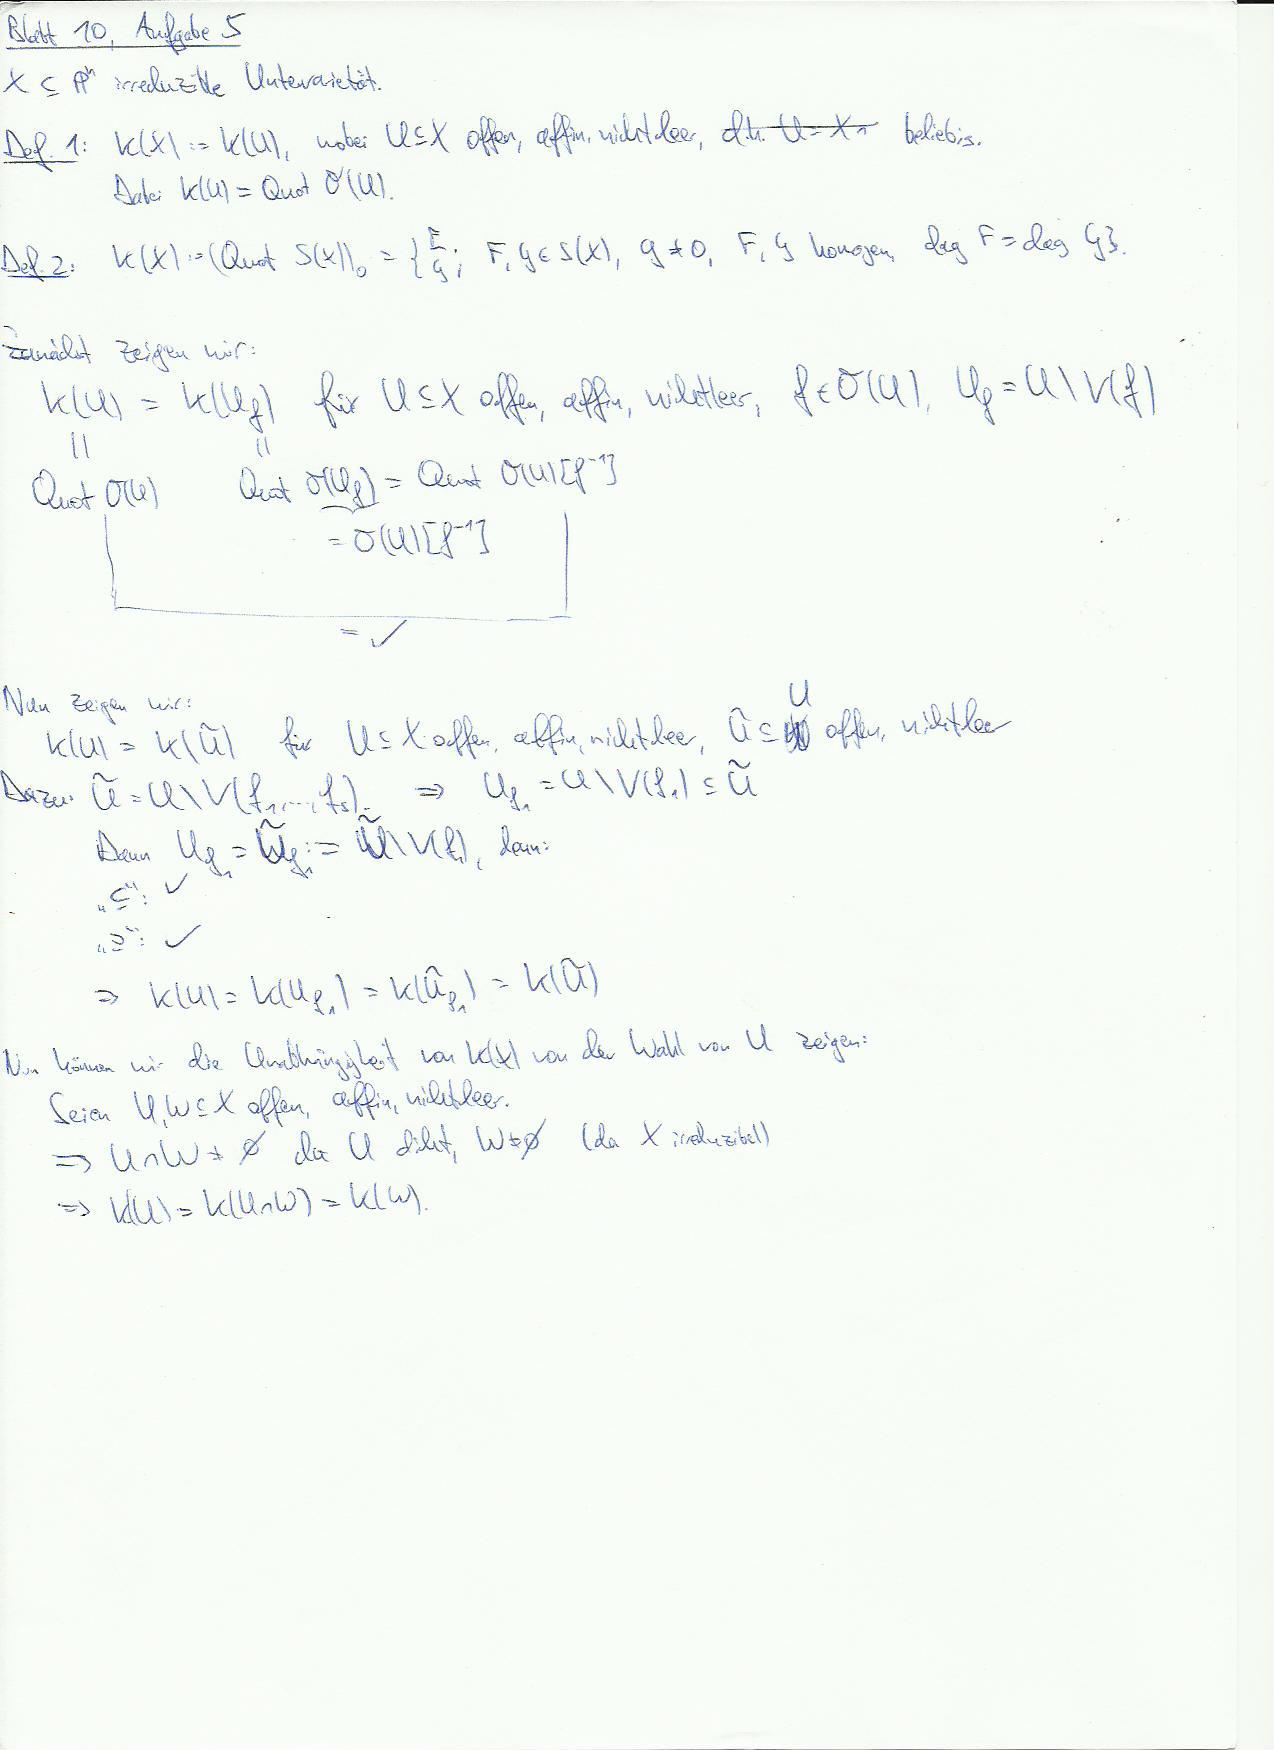 Blatt 10, Aufgabe 5
X ⊆ ℙⁿ irreduzible Untervarietät.
Def. 1: K(X) := K(U), wobei U ⊆ X offen, affin, nichtleer, d.h. U = X ∩ beliebig.
Dabei K(U) = Quot O(U).
Def 2: K(X) := (Quot S(X))₀ = { F/G ; F, G ∈ S(X), G ≠ 0, F, G homogen, deg F = deg G }.
Zunächst zeigen wir:
K(U) = K(U_f) für U ⊆ X offen, affin, nichtleer, f ∈ O(U), U_f = U \ V(f)
|| ||
Quot O(U) Quot O(U_f) = Quot O(U)[f⁻¹]
= O(U)[f⁻¹]
= ✓
Nun zeigen wir:
U
K(U) = K(Ũ) für U ⊆ X offen, affin, nichtleer, Ũ ⊆ offen, nichtleer
Dazu: Ũ = U \ V(f₁, ..., fₛ). ⇒ U_f₁ = U \ V(f₁) ⊆ Ũ
Dann U_f₁ = Ũ_f₁ := Ũ \ V(f₁), denn:
„⊆“: ✓
„⊇“: ✓
⇒ K(U) = K(U_f₁) = K(Ũ_f₁) = K(Ũ)
Nun können wir die Unabhängigkeit von K(X) von der Wahl von U zeigen:
Seien U, W ⊆ X offen, affin, nichtleer.
⇒ U ∩ W ≠ ∅ da U dicht, W ≠ ∅ (da X irreduzibel)
⇒ K(U) = K(U ∩ W) = K(W).